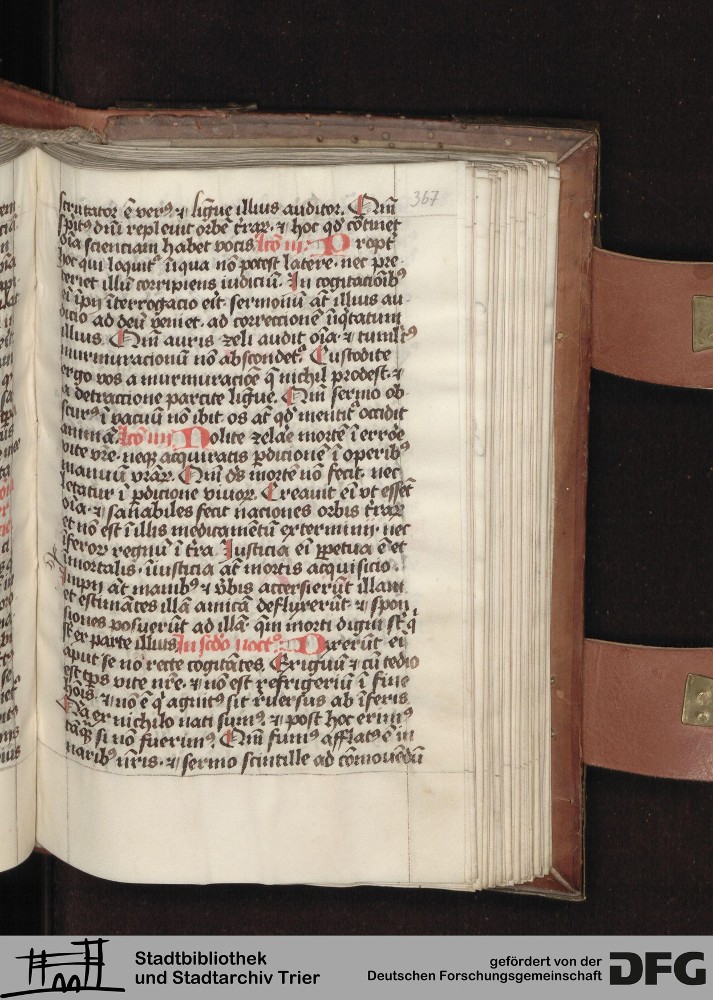 367
scrutator ē verꝰ ⁊ ligue illius auditor. Qm̄
spūs dn̄i repleuit orbē trāꝝ ⁊ hoc qd̓ cōtinet
oīa scienciam habet vocis. lcō iij. Propt̓
hoc qui loquitᷣ īiqua nō potest latere. nec pre
teriet illū corripiens iudiciū. In cogitacōibꝰ
eī īpij īterrogacio erit. sermonū āt illius au
dicio ad deū veniet. ad correccionē īiqtatum
illius. Qm̄ auris zeli audit oīa ⁊ tumultꝰ
murmuracionū nō abscondetᷣ. Custodite
ergo vos a murmuracōe q̄ nichil prodest. ⁊
a detractione parcite ligue. Qm̄ sermo ob
scurꝰ ī vacuū nō ibit. os āt qd̓ mentitᷣ occidit
animā. lcō iiij. Nolite zelare mortē ī errore
vite vr̄e. neqꝫ acquiratis pdicionē ī operibꝰ
manuū vr̄aꝝ. Qm̄ ds̄ mortē nō fecit. nec
letatur ī pdicione viuoꝝ. Creauit eī vt essēt
oīa. ⁊ sanabiles fecit naciones orbis trāꝝ
et nō est ī illis medicamētū exterminij. nec
īferoꝝ regnū ī tr̄a. Iusticia eī ppetua ē et
īmortalis. īiusticia āt mortis acquisicio.
Impij āt manibꝰ ⁊ v̓bis accersierūt illam
et estimātes illā amicā defluxerūt. ⁊ spon
siones posuerūt ad illā. qm̄ morti digni st̄ q̓
st̄ ex parte illius. In scd̓o noctᷣ. Dixerūt eī
aput se nō recte cogitātes. Exiguū ⁊ cū tedio
est tp̄s vite nr̄e. ⁊ nō est refrigeriū ī fine
hoīs. ⁊ nō ē q̓ agnitꝰ sit reuersus ab īferis.
Qā ex nichilo nati sumꝰ. ⁊ post hoc erimꝰ
tāq̄ si nō fuerimꝰ. Qm̄ fumꝰ afflatꝰ ē in
naribꝰ nr̄is. ⁊ sermo scintille ad cōmouēdū
Stadtbibliothek
und Stadtarchiv Trier
gefördert von der
Deutschen Forschungsgemeinschaft
DFG